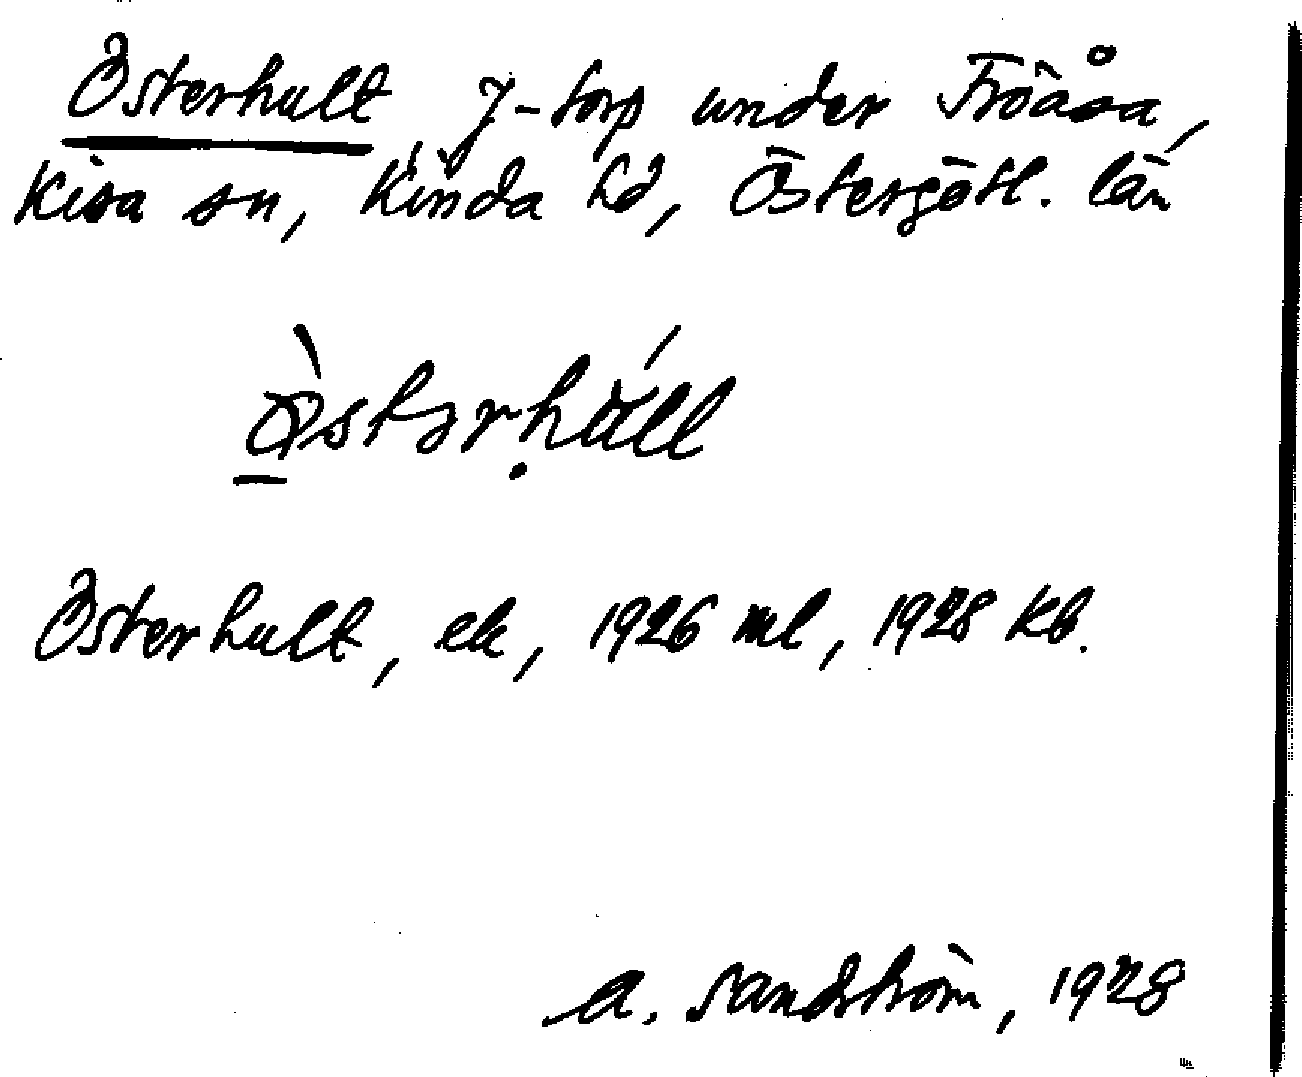 Österhult J-torp under Fröåsa,
Kisa sn, Kinda hd, Östergötl. län
Österhult, ek, 1926 ml, 1928 kb.
A. Sandström, 1928